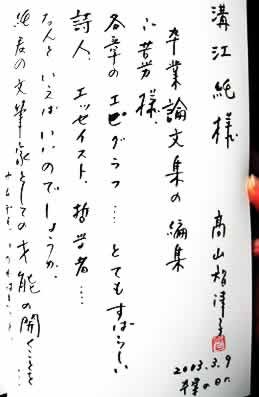 溝江純様
高山智津子
2003.3.9
卒業の日に
卒業論文集の編集
ご苦労様。
各章のエピグラフ…。とてもすばらしい
詩人、エッセイスト、哲学者……
なんといえばいいのでしょうか。
純君の文筆家としての才能の開くことを